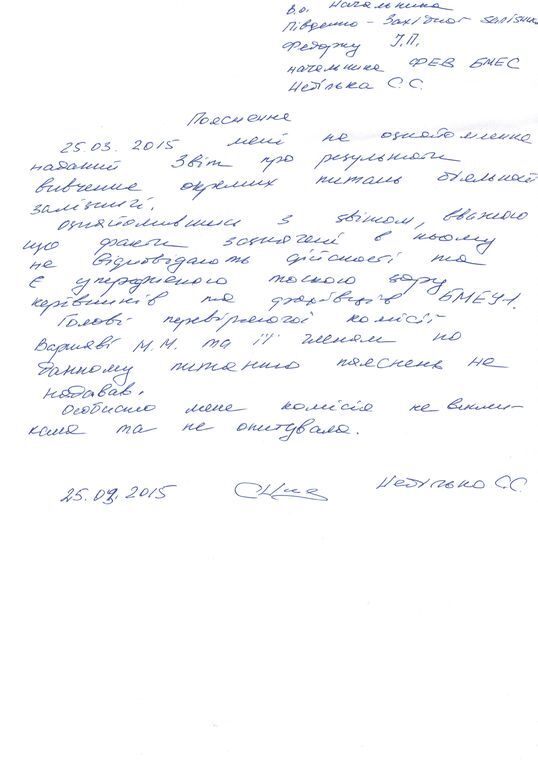 В.о. Начальника
Південно-Західної залізниці
Федорку І.П.
начальника ФЕВ БМЕС
Нетілька С.С.
Пояснення
25.03.2015 мені на ознайомлення
наданий Звіт про результати
вивчення окремих питань діяльності
залізниці.
Ознайомившись з звітом, вважаю
що факти зазначені в ньому
не відповідають дійсності та
є упередженою точкою зору
керівників та фахівців БМЕУ-1.
Голові перевіряючої комісії
М.М. та її членам по
данному питанню пояснень не
надавав.
Особисто мене комісія не викли-
кала та не опитувала.
25.03.2015 Нетілько С.С.